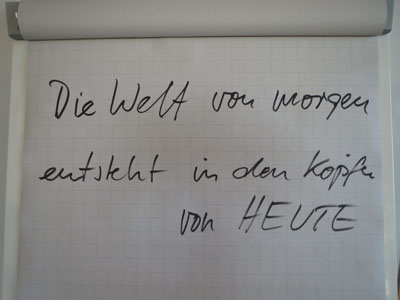 Die Welt von morgen
entsteht in den Köpfen
von HEUTE